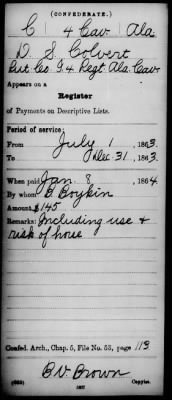 (CONFEDERATE.)
C 4 Cav Ala
D. S. Colvert
Co. G 4 Regt. Ala. Cav.
Appears on a
Register
of Payments on Descriptive Lists.
Period of service:
From July 1, 1863.
To Dec. 31, 1863.
When paid Jan. 8, 1864
By whom B Boykin
Amount, $145
Remarks: Including use &
risk of horse
Confed. Arch., Chap. 5, File No. 53, page 113
B V Brown
Copyist.